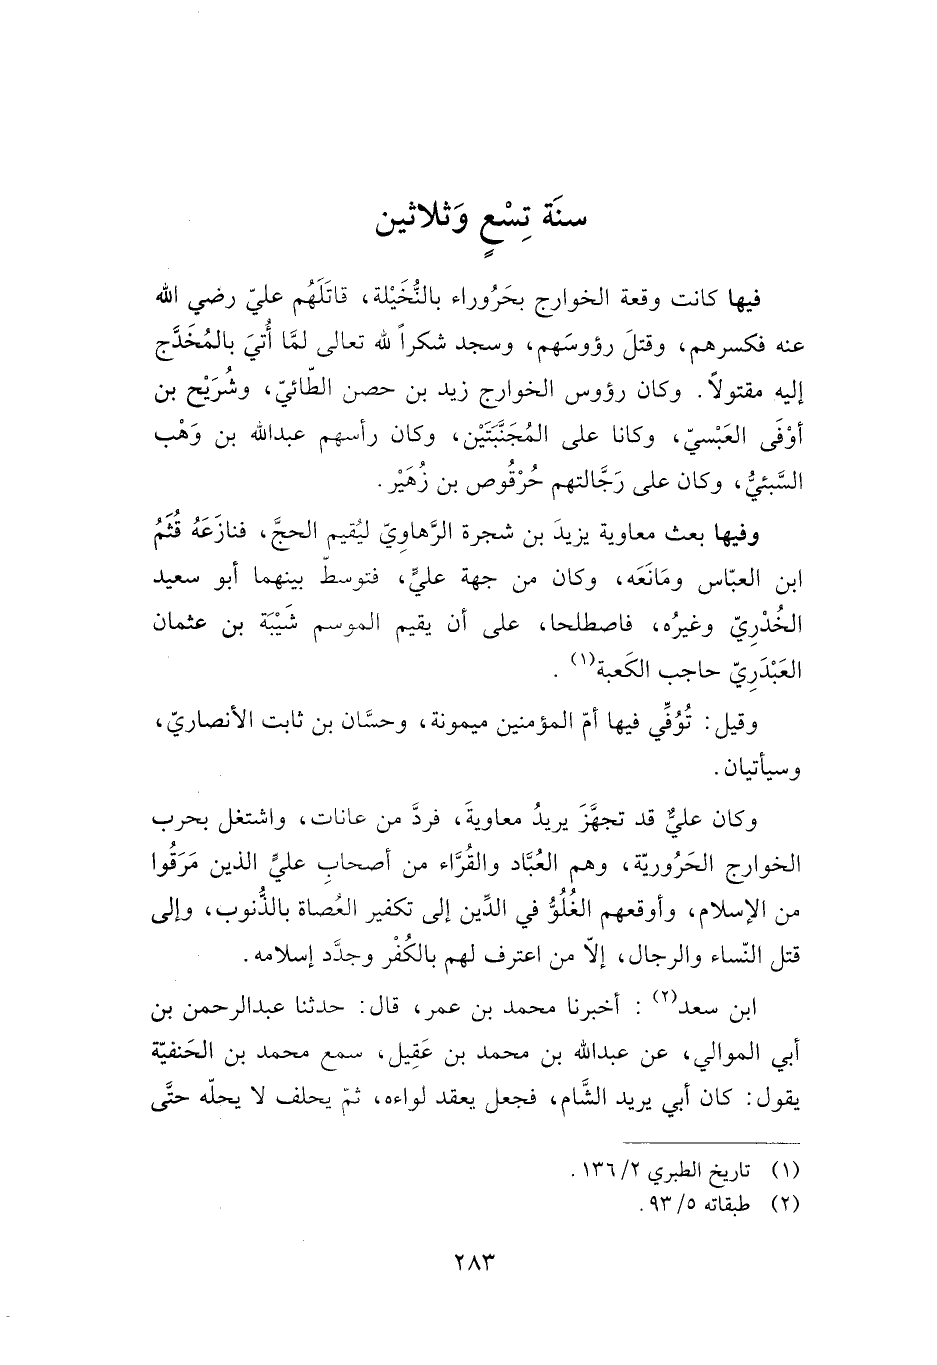 سنَة تِسْعٍ وَثلاثين
فيها كانت وقعة الخوارج بحَرُوراء بالنُّخَيْلة، قاتَلَهُم عليّ رضي الله
عنه فكسرهم، وقتلَ رؤوسَهم، وسجد شكراً لله تعالى لمَّا أُتيَ بالمُخَدَّج
إليه مقتولاً. وكان رؤوس الخوارج زيد بن حصن الطّائيّ، وشُرَيْح بن
أوْفَى العَبْسيّ، وكانا على المُجَنَّبَتَيْن، وكان رأسهم عبدالله بن وَهْب
السَّبئيُّ، وكان على رَجَّالتهم حُرْقُوص بن زُهَيْر.
وفيها بعث معاوية يزيدَ بن شجرة الرَّهاوِيّ ليُقيم الحجَّ، فنازَعَهُ قُثَمُ
ابن العبّاس ومَانَعَه، وكان من جهة عليٍّ، فتوسطَّ بينهما أبو سعيد
الخُدْرِيّ وغيرُه، فاصطلحا، على أن يقيم الموسم شَيْبَة بن عثمان
العَبْدَرِيّ حاجب الكَعبة(١).
وقيل: تُوُفِّي فيها أمّ المؤمنين ميمونة، وحسَّان بن ثابت الأنصاريّ،
وسيأتيان.
وكان عليٌّ قد تجهَّزَ يريدُ معاويةَ، فردَّ من عانات، واشتغل بحرب
الخوارج الحَرُوريّة، وهم العُبَّاد والقُرَّاء من أصحابِ عليٍّ الذين مَرَقُوا
من الإسلام، وأوقعهم الغُلُوُّ في الدِّين إلى تكفير العُصاة بالذُّنوب، وإلى
قتل النّساء والرجال، إلاّ من اعترف لهم بالكُفْر وجدَّد إسلامه.
ابن سعد(٢): أخبرنا محمد بن عمر، قال: حدثنا عبدالرحمن بن
أبي الموالي، عن عبدالله بن محمد بن عَقِيل، سمع محمد بن الحَنفيّة
يقول: كان أبي يريد الشَّام، فجعل يعقد لواءه، ثمّ يحلف لا يحلّه حتَّى
(١) تاريخ الطبري ٢/ ١٣٦.
(٢) طبقاته ٥/ ٩٣.
٢٨٣